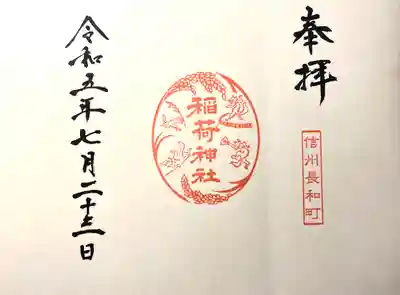 奉拝
信州長和町
稲荷神社
令和五年七月二十三日